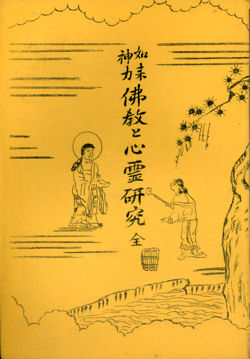 如来
神力
佛教と心霊研究 全